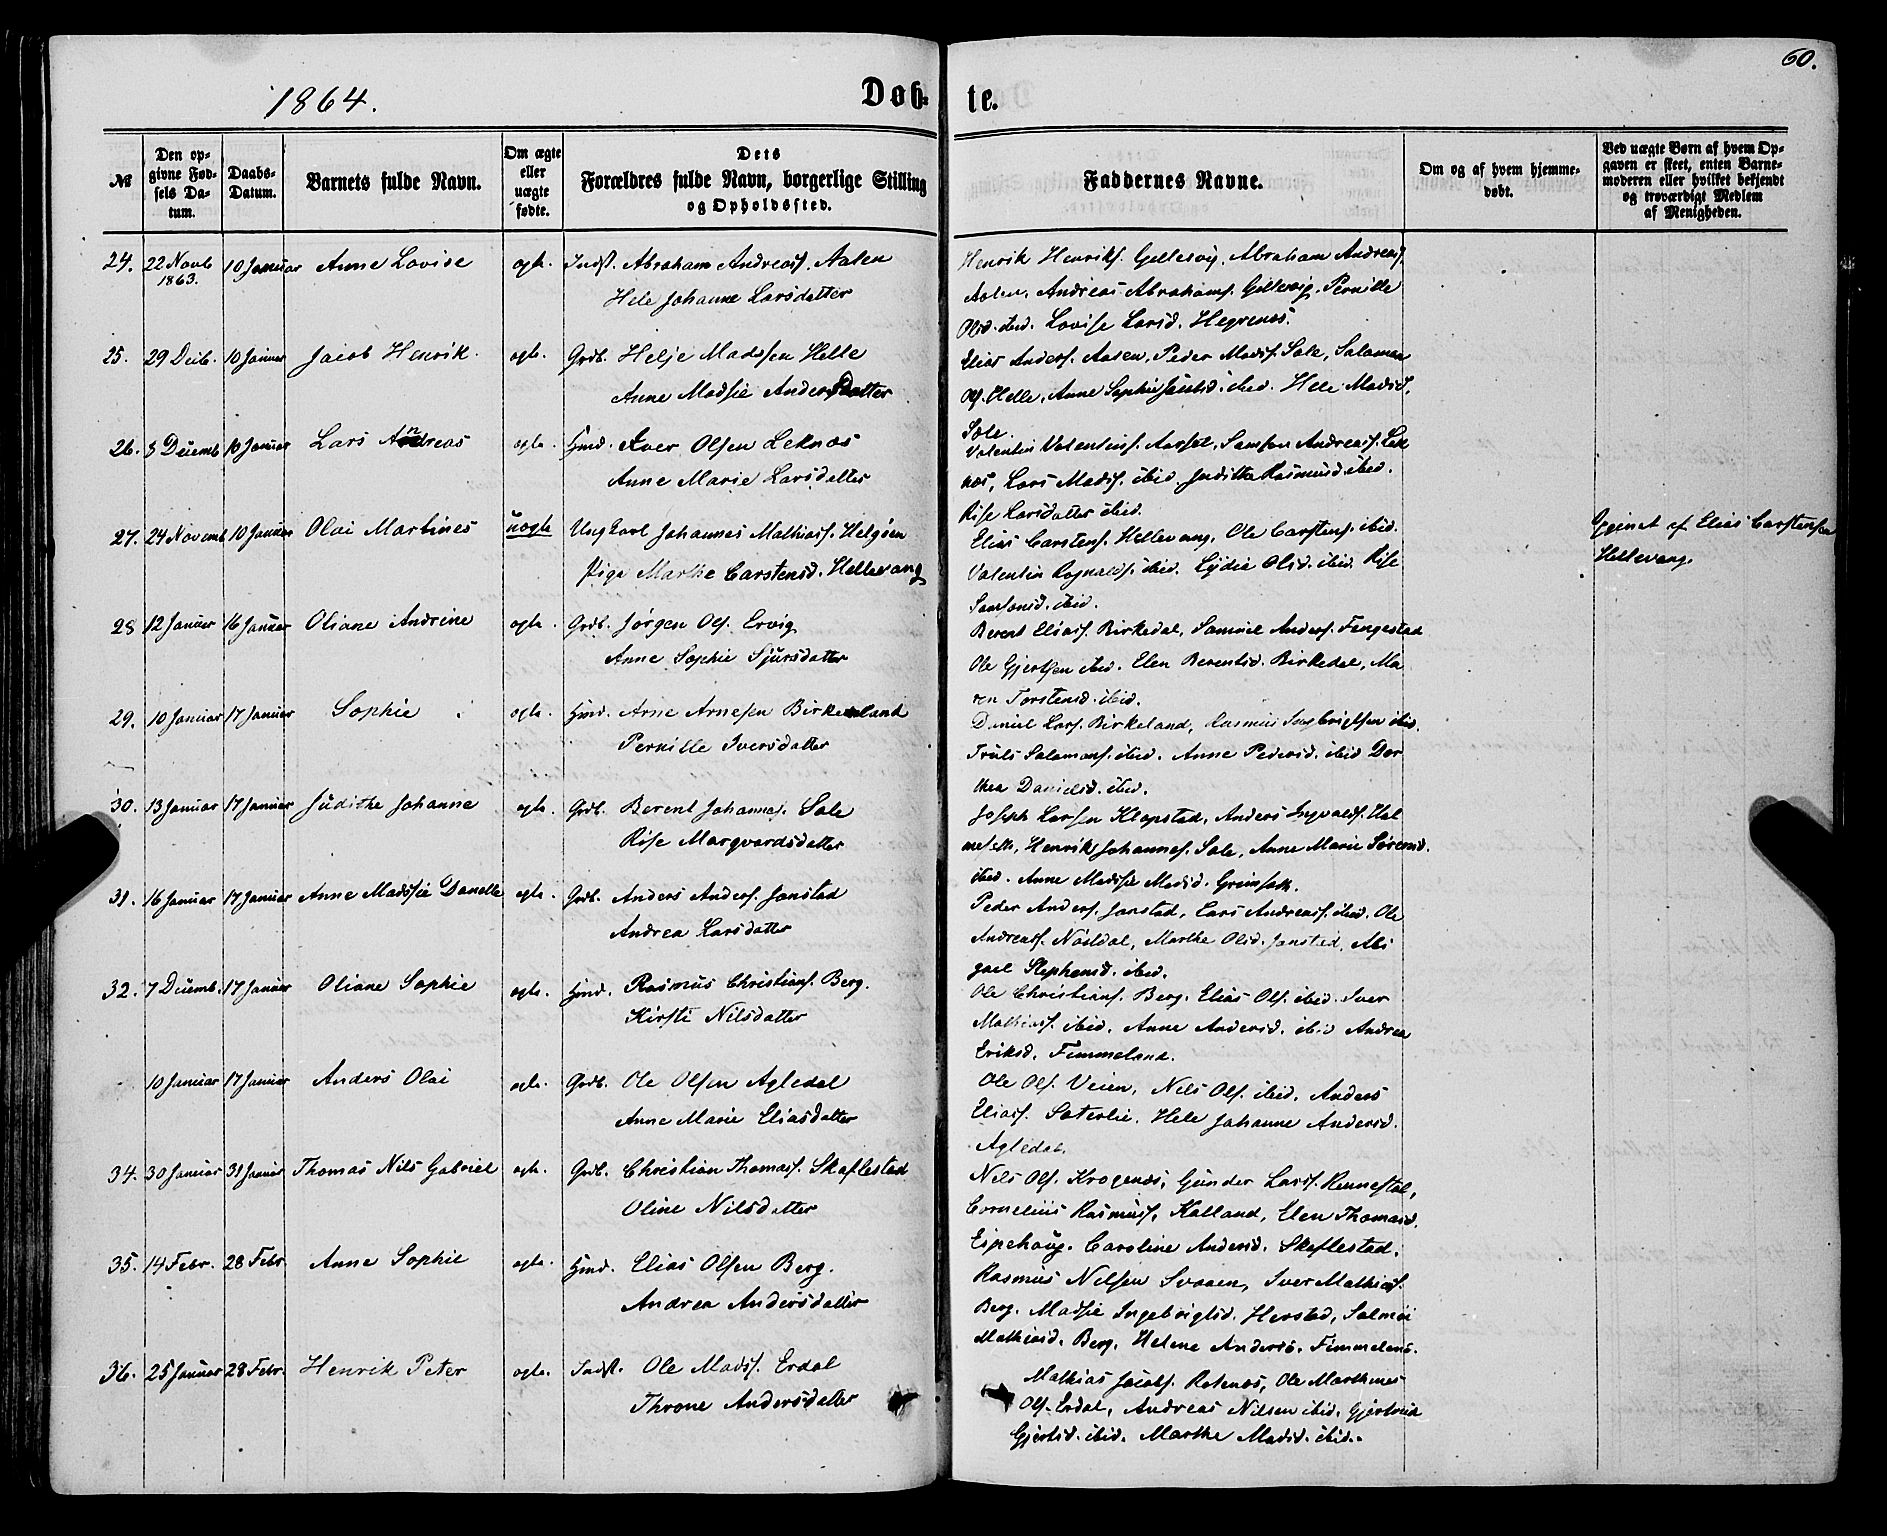 60.
1864.
Døb-
te.
№
Den op-
givne Fød-
sels Da-
tum.
Daabs-
Datum.
Barnets fulde Navn.
Om ægte
eller
uægte
fødte.
Dets
Forældres fulde Navn, borgerlige Stilling
og Opholdssted.
Faddernes Navne.
Om og af hvem hjemme-
døbt.
Ved uægte Børn af hvem Op-
gaven er skeet, enten Barne-
moderen eller hvilket bekjendt
og troværdigt Medlem
af Menigheden.
24. 22 Novb 10 Januar Anne Lovise ægte. Indst. Abraham Andreasf. Aalen
1863.
Hele Johanne Larsdatter
Henrik Henrikf. Gellesvig, Abraham Andreasf.
Aalen, Andreas Abrahamf. Gellesvig. Pernille
Olsd. ibid. Lovise Larsd. Hegrenæs.
25. 29 Decb. 10 Januar Jacob Henrik. ægte. Grdb. Helje Madssen Helle
Anne Madsie Andersdatter
Elias Andersf. Aasen, Peder Madsf. Sole, Salamon
Olf. Helle, Anne Sophie ibid. Hele Madsd.
Sole.
26. 3 Decemb 10 Januar Lars Andreas ægte. Hmd. Iver Olsen Leknæs
Anne Marie Larsdatter
Valentin Valentinsf. Aarsæl, Samson Andreasf. Lek
næs, Lars Madsf. ibid. Judithe Rasmusd. ibid.
Rise Larsdatter ibid.
27. 24 Novemb 10 Januar Olai Martines uægte Ungkarl Johannes Mathiasf. Helgøen
Pige Marthe Carstensd. Hellevang
Elias Carstenf. Hellevang, Ole Carstenf. ibid.
Valentin Rognaldf. ibid. Lydie Olsd. ibid. Rise
Samsonsd. ibid.
Opgivet af Elias Carstensen
Hellevang.
28 12 Januar 16 Januar Oliane Andrine ægte. Grdb. Jørgen Olf. Ervig
Anne Sophie Sjursdatter
Berent Eliasf. Birkedal, Samuel Andersf. Fengestad
Ole Gjertsen ibid. Elen Berentsd. Birkedal, Ma
ren Torstensd. ibid.
29. 10 Januar 17 Januar Sophie ægte. Hmd. Arne Arnesen Birkeland
Pernille Iversdatter
Daniel Larsf. Birkeland, Rasmus Ingebrigtsen ibid.
Truls Salamonsf. ibid. Anne Pedersd. ibid Dor
thea Danielsd. ibid.
30. 13 Januar 17 Januar Judithe Johanne ægte. Grdb. Berent Johannesf. Sole
Rise Margvardsdatter
Joseph Larsen Klopstad, Anders Ingvaldsf. Hal
Henrik Johannesf. Sole, Anne Marie Sørensd.
ibid. Anne Madsie Madsd. Grimsæth.
31. 16 Januar 17 Januar Anne Madssie Danelle ægte. Grdb. Anders Andersf. Jonstad
Andrea Larsdatter
Peder Andersf. Jonstad, Lars Andreasf. ibid. Ole
Andreasf. Nøstdal, Marthe Olsd. Jonstad, Abi
gael Stephensd. ibid.
32. 7 Decemb. 17 Januar Oliane Sophie ægte. Hmd. Rasmus Christiansf. Berg.
Kirsti Nilsdatter
Ole Christiansf. Berg. Elias Olf. ibid. Iver
Mathiasf. ibid. Anne Andersd. ibid Andrea
Eriksd. Fimmeland.
10 Januar 17 Januar Anders Olai ægte. Grdb. Ole Olsen Agledal
Anne Marie Eliasdatter
Ole Olf. Veien, Nils Olf. ibid. Anders
Eliasf. Sæterlie, Hele Johanne Andersd.
Agledal.
34. 30 Januar 31 Januar Thomas Nils Gabriel ægte. Grdb. Christian Thomasf. Skaflestad
Oline Nilsdatter
Nils Olf. Krogenæs, Gunder Larsf. Rennestal,
Cornelius Rasmusf. Kalland, Elen Thomasd.
Espehaug. Caroline Andersd. Skaflestad.
35. 14 Febr. 28 Febr. Anne Sophie ægte. Hmd. Elias Olsen Berg.
Andrea Andersdatter
Rasmus Nelsen Svaaen, Iver Mathiasf.
Berg. Madsie Ingebrigtsd. Herstad, Salmøi
Mathiasd. Berg. Helene Andersd. Fimmeland.
36. 25 Januar 28 Febr. Henrik Peter ægte. Indst. Ole Madsf. Erdal
Throne Andersdatter
Mathias Jacobf. Rotenæs, Ole Marthines
Olf. Erdal, Andreas Nilsen ibid. Gjertrud
Gjertsd. ibid. Marthe Madsd. ibid.